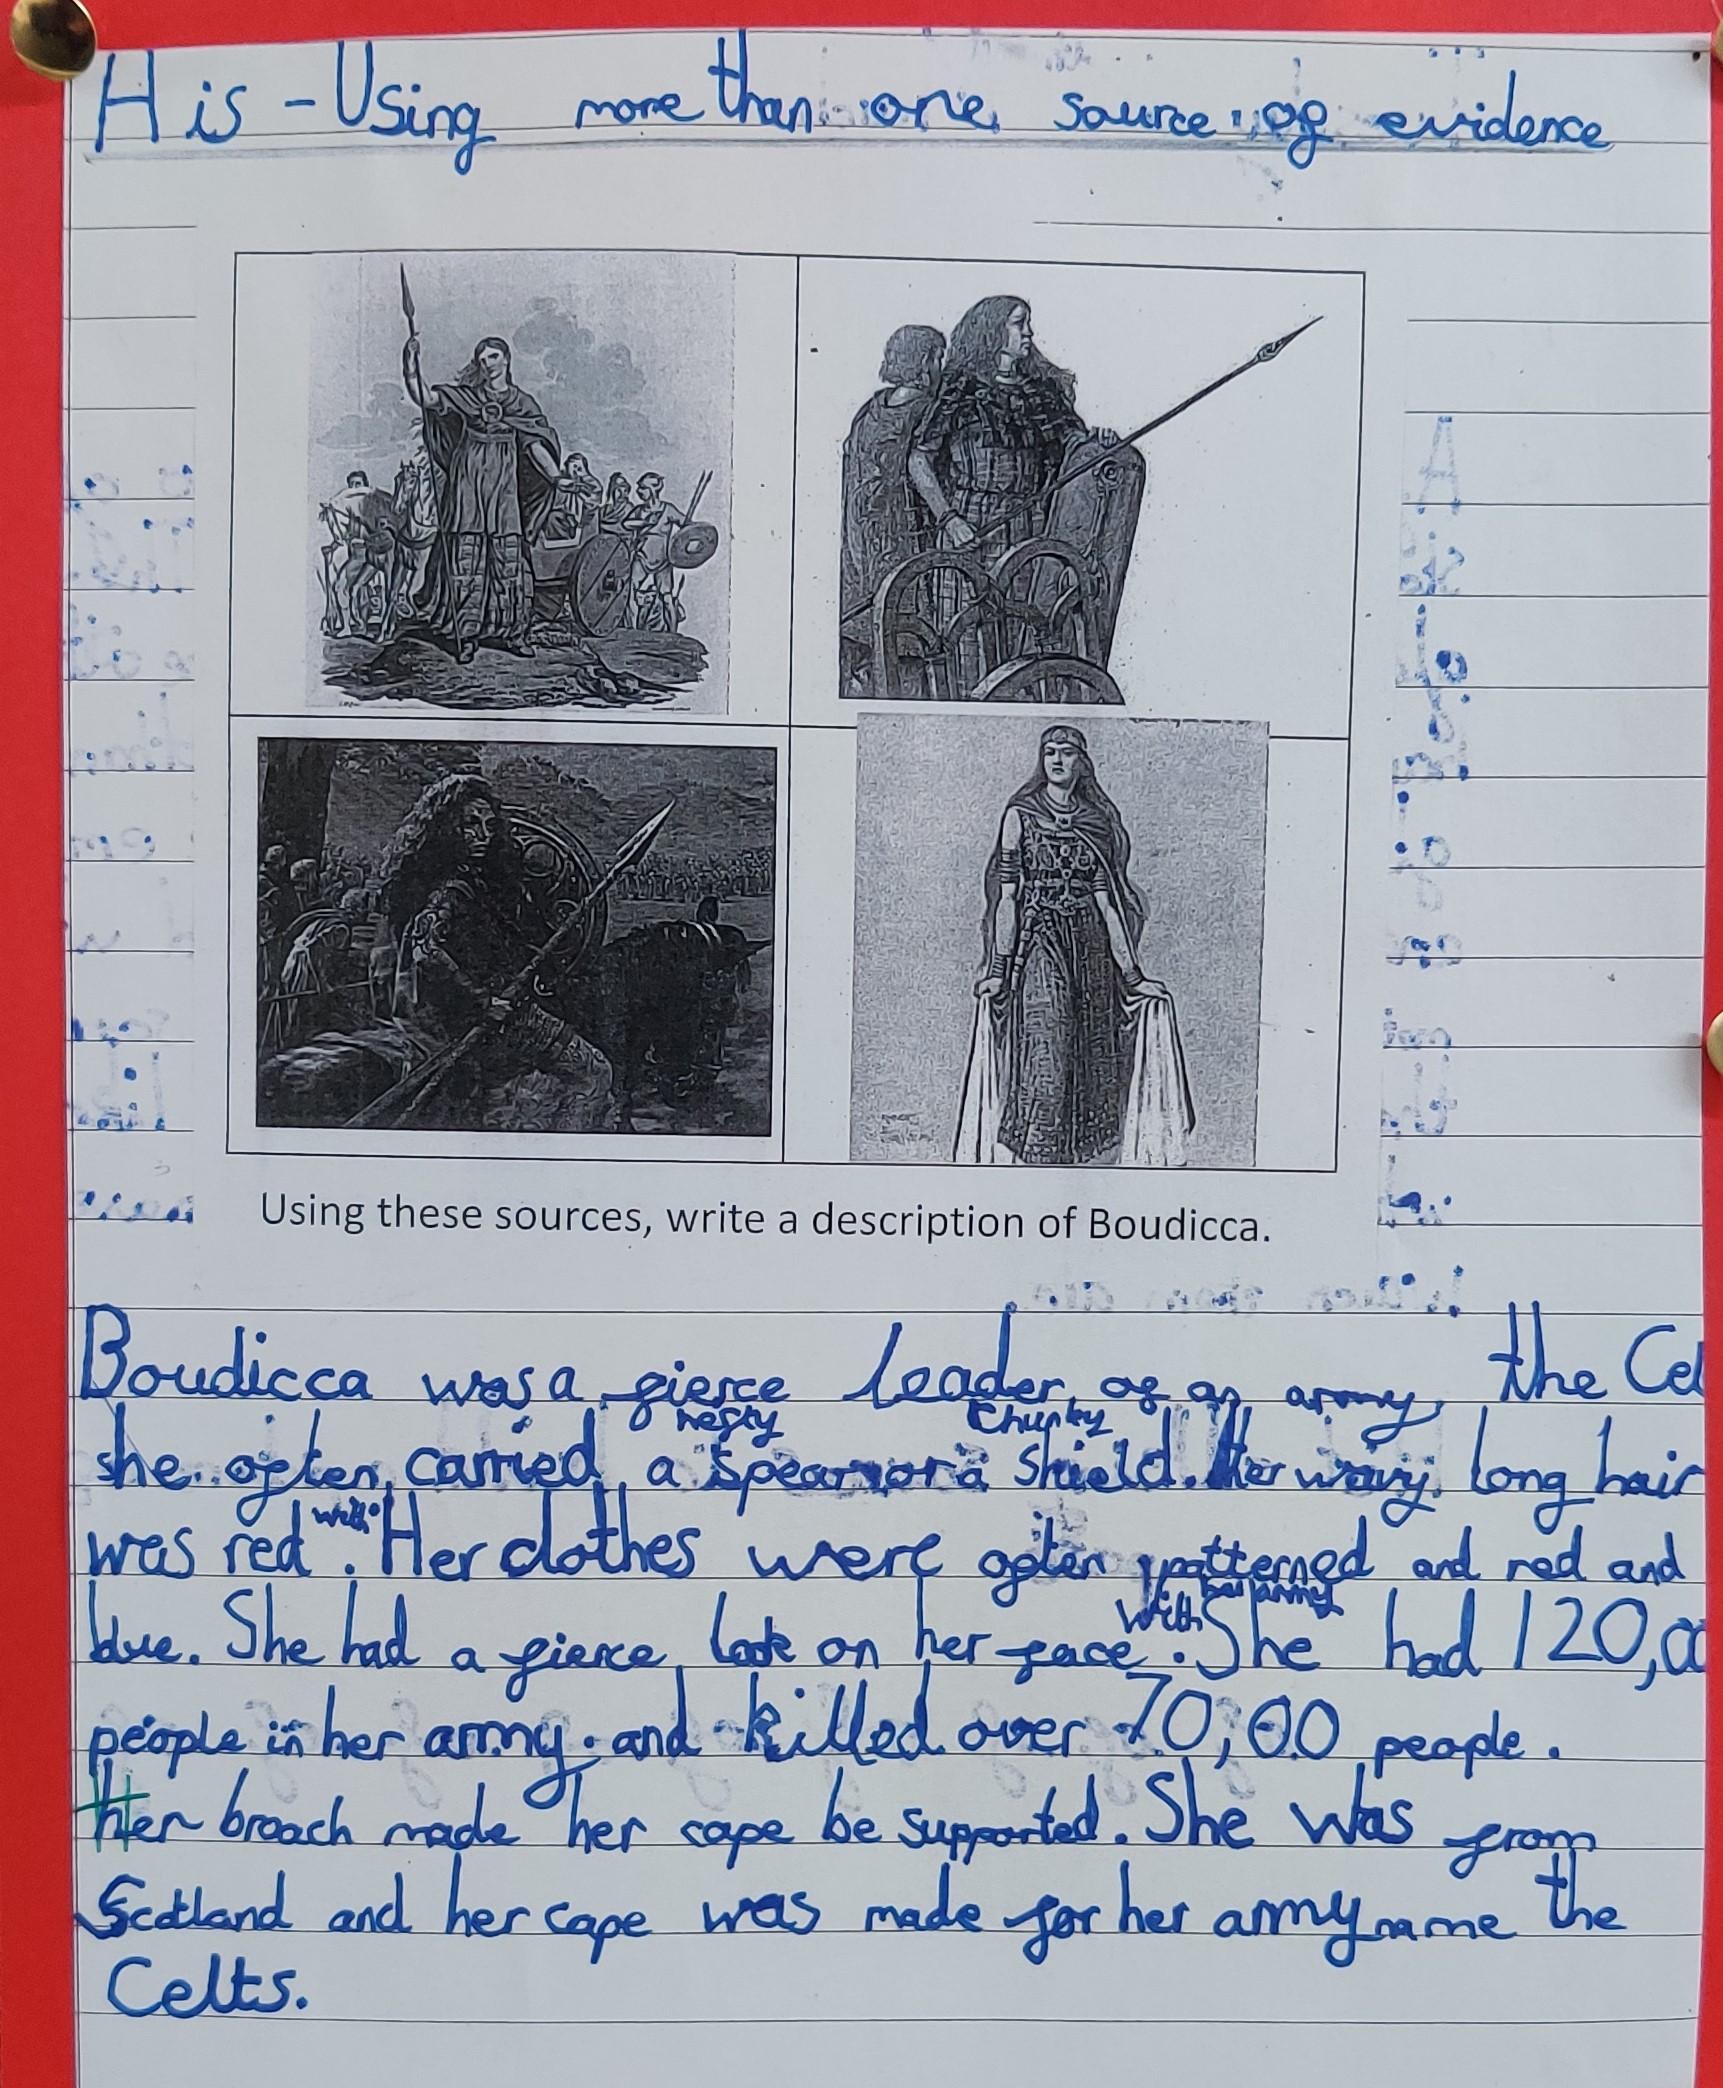 His - Using more than one source of evidence
Using these sources, write a description of Boudicca.
Boudicca was a fierce leader of an army, the Cel
nesty chunky
she often carried a spear or a shield. Her wavy long hair
with
was red. Her clothes were often patterned and red and
with her army
blue. She had a fierce look on her face. She had 120,00
people in her army. and killed over 70,00 people.
Her broach made her cape be supported. She was from
Scotland and her cape was made for her army name the
Celts.